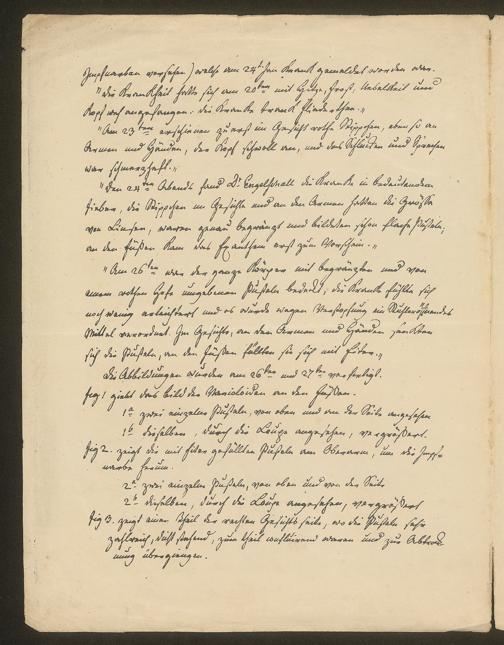 Impfnarben versehen) welche am 24ᵗ Jan krank gemeldet worden war.
"die Krankheit hatte sich am 20ᵗᵉⁿ mit Hitze, Frost, Uebelkeit und
Kopfweh angefangen. die Kranke trank Fliederthee."
"Am 23ᵗᵉⁿ erschienen zuerst im Gesicht rothe Stippchen, eben so an
Armen und Händen, der Kopf schwoll an, und das Schlucken und Sprechen
war schmerzhaft."
"Den 24ᵗᵉⁿ Abends fand Dʳ Engelschall die Kranke in bedeutendem
Fieber, die Stippchen im Gesichte und an den Armen hatten die Grösse
von Linsen, waren genau begränzt und bildeten schon flache Pusteln,
an den Füßen kam das Exanthem erst zum Vorschein."
"Am 26ᵗᵉⁿ war der ganze Körper mit begränzten und von
einem rothen Hofe umgebenen Pusteln bedeckt, die Kranke fühlte sich
noch wenig erleichtert und es wurde wegen Verstopfung ein
Mittel verordnet. Im Gesichte, an den Armen und Händen senkten
sich die Pusteln, an den Füßen füllten sie sich mit Eiter."
die Abbildungen wurden am 26ᵗᵉⁿ und 27ᵗᵉⁿ verfertigt.
Fig 1 giebt das bild der Varioloiden an den Füßen.
1ᵃ zwei einzelne Pusteln, von oben und an der Seite angesehen
1ᵇ dieselben, durch die Loupe angesehen, vergrößert.
Fig 2. zeigt die mit Eiter gefüllten Pusteln am Oberarm, um die Impf=
narbe herum.
2ᵃ zwei einzelne Pusteln, von oben und von der Seite
2ᵇ dieselben, durch die Loupe angesehen, vergrößert
Fig 3. zeigt einen Theil der rechten Gesichtsseite, wo die Pusteln sehr
zahlreich, dicht stehend, zum Theil confluirend waren und zur Abtrock=
nung übergiengen.